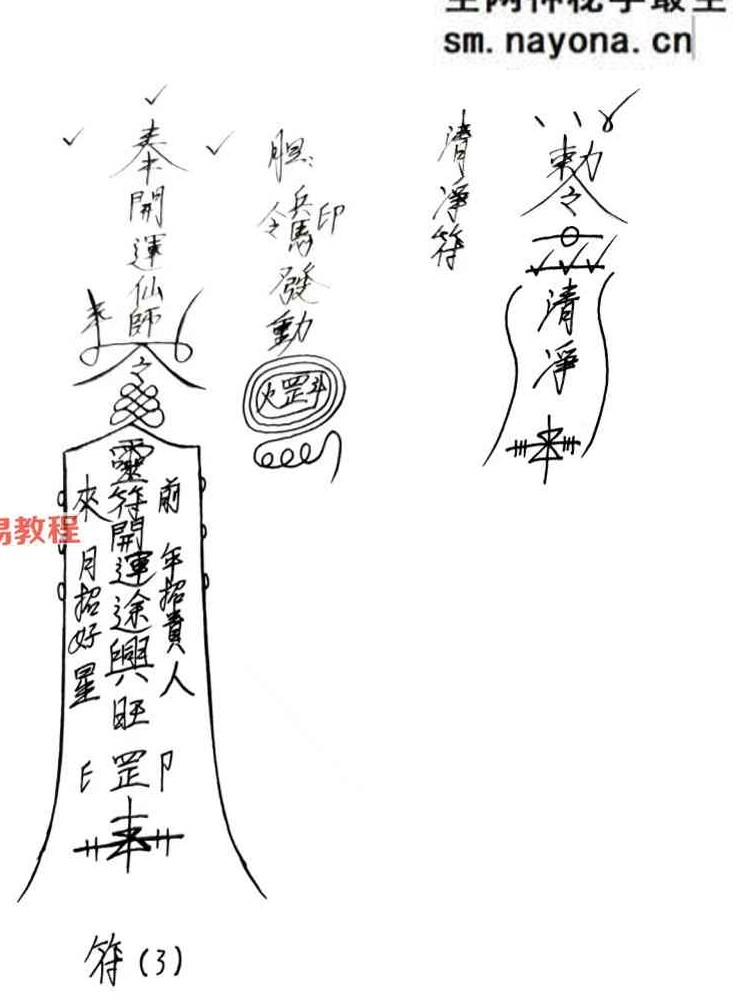 sm.nayona.cn
奉開運仙師
令
靈符開運途興旺
前年招貴人
來月招好星
罡
印
符(3)
胆:
令兵馬印
發動
火罡斗
清淨符
勅令
清淨
易教程